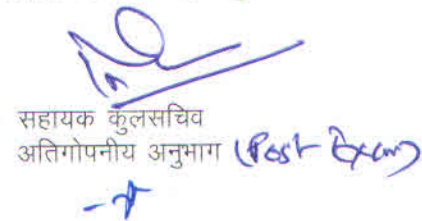 सहायक कुलसचिव
अतिगोपनीय अनुभाग (Post Exam)